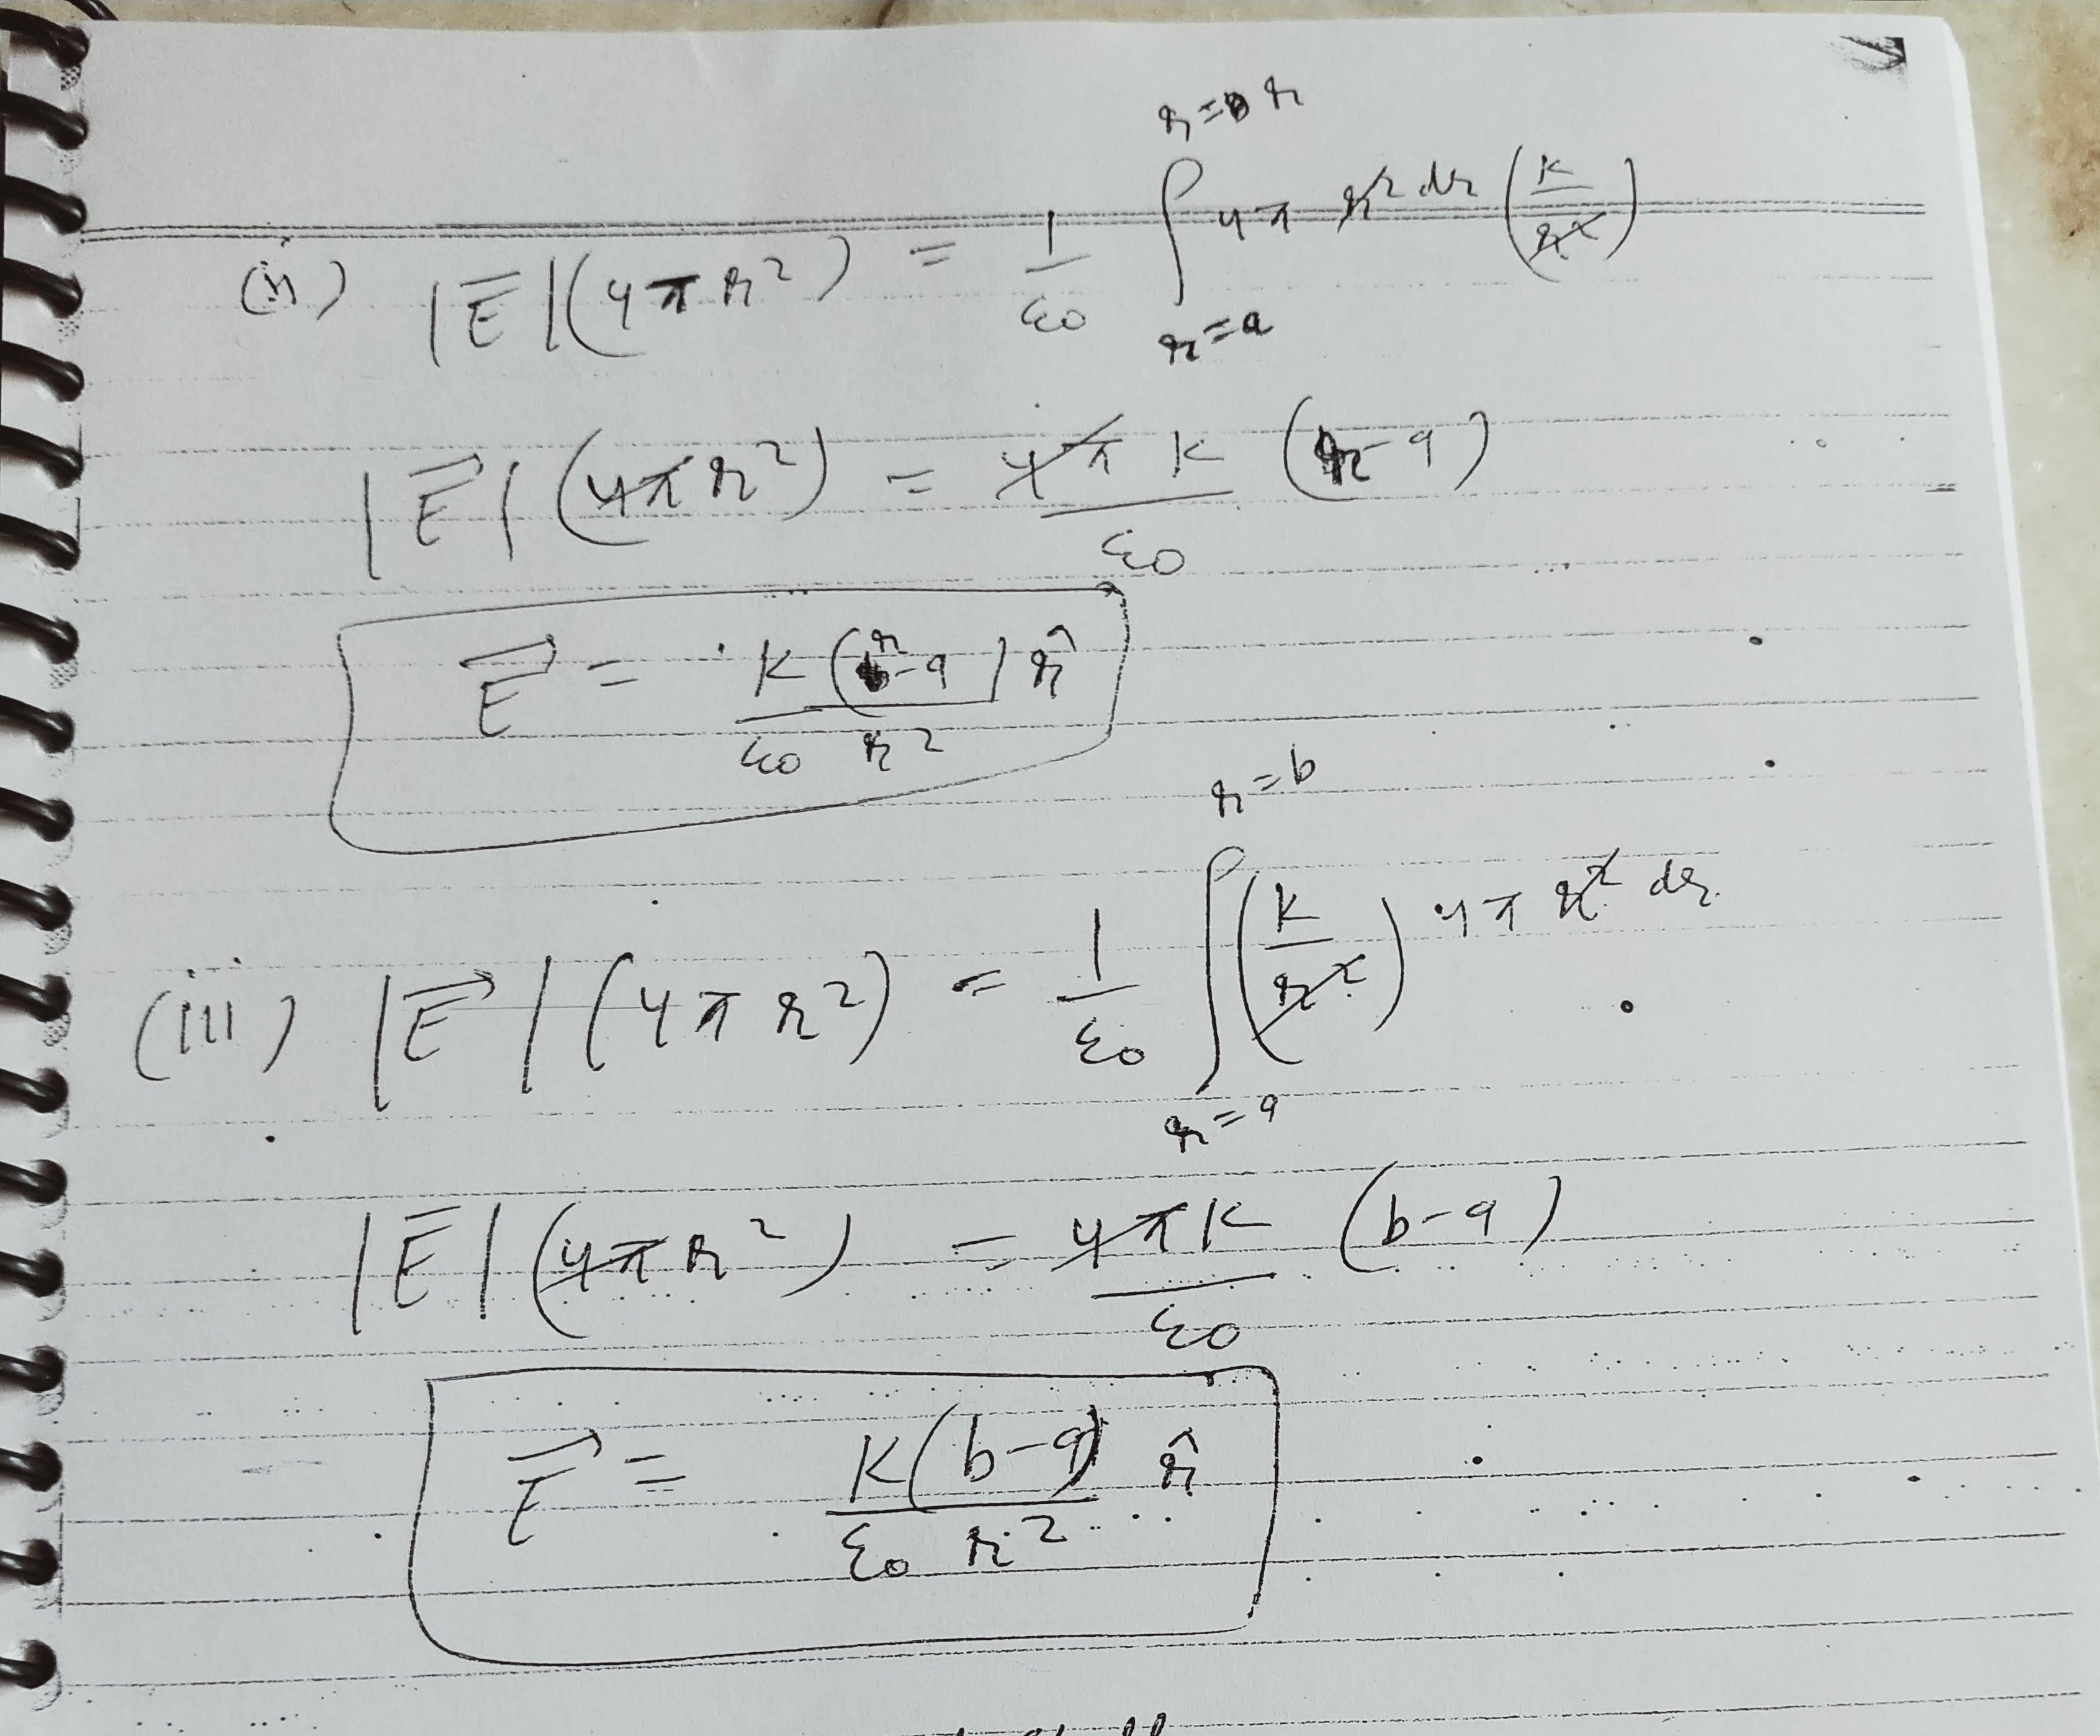 (ii) |E̅|(4πr²) = 1/ε₀ ∫_{r=a}^{r=r} 4π r² dr (K/r²)
|E⃗|(4πr²) = 4πK/ε₀ (r-a)
E⃗ = K(r-a)/ε₀ r² r̂
(iii) |E⃗|(4πr²) = 1/ε₀ ∫_{r=a}^{r=b} (K/r²) 4π r² dr
|E̅|(4πr²) = 4πK/ε₀ (b-a)
E⃗ = K(b-a)/ε₀ r² r̂